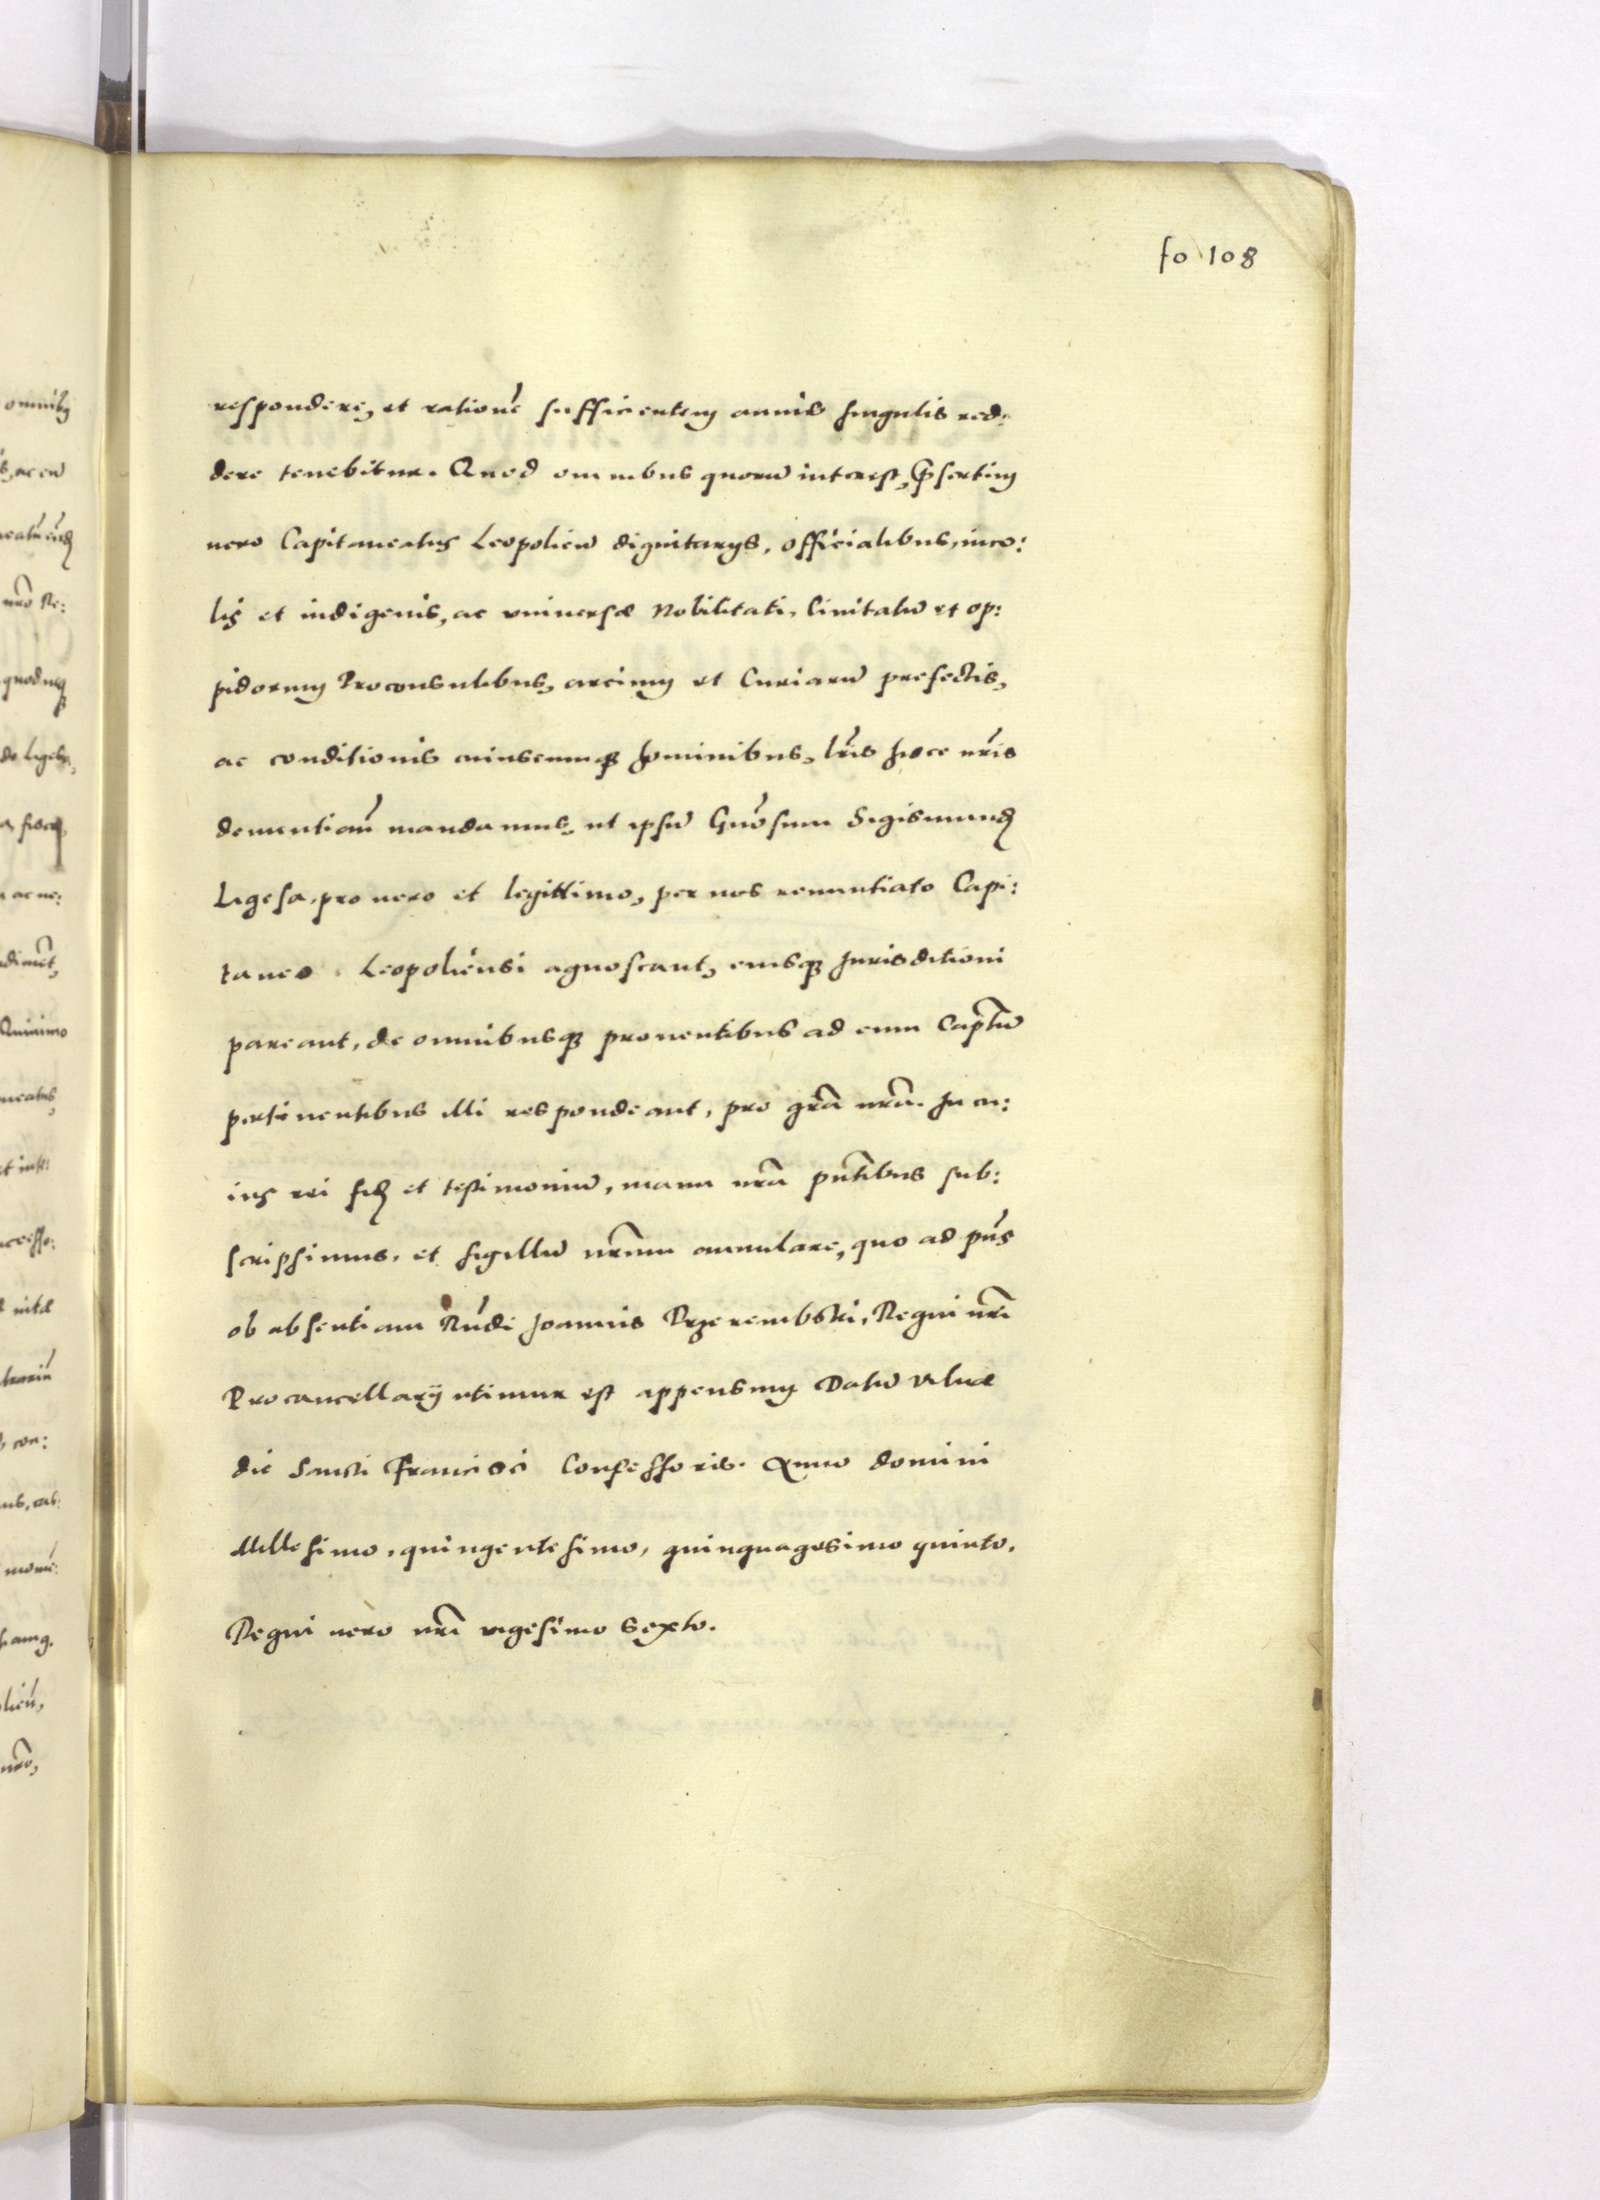 fo 108
respondere, et rationē sufficientem annis singulis red:
dere tenebitur. Quod omnibus quorū interest, p̄sertim
vero Capitaneatus Leopolien̄ dignitarys, officialibus, inco:
lis et indigenis, ac vniversæ Nobilitati, Civitatū et op:
pidorum Proconsulibus, arcium et Curiarū prefectis,
ac conditionis cuiuscumq; hominibus, lr̄is hisce nr̄is
denuntian̄ mandamus, ut ipsū Gnōsum Sigismund
Ligęsa, pro vero et legittimo, per nos renuntiato Capi:
taneo Leopoliensi agnoscant, eiusq; Jurisditioni
pareant, de omnibusq; proventibus ad eum Capt̄ū
pertinentibus illi respondeant, pro gr̄a nr̄a. In cu:
ius rei fid et testimoniū, manu nr̄a pn̄tibus sub:
scripsimus, et sigillū nr̄um annulare, quo ad pn̄s
ob absentiam Rn̄di Joannis Przerembski, Regni nr̄i
Procancellarÿ utimur est appensum Datū Vilnæ
die Sancti Francisci Confessoris. Anno domini
Millesimo, quingentesimo, quinquagesimo quinto.
Regni vero nr̄i vigesimo sexto.